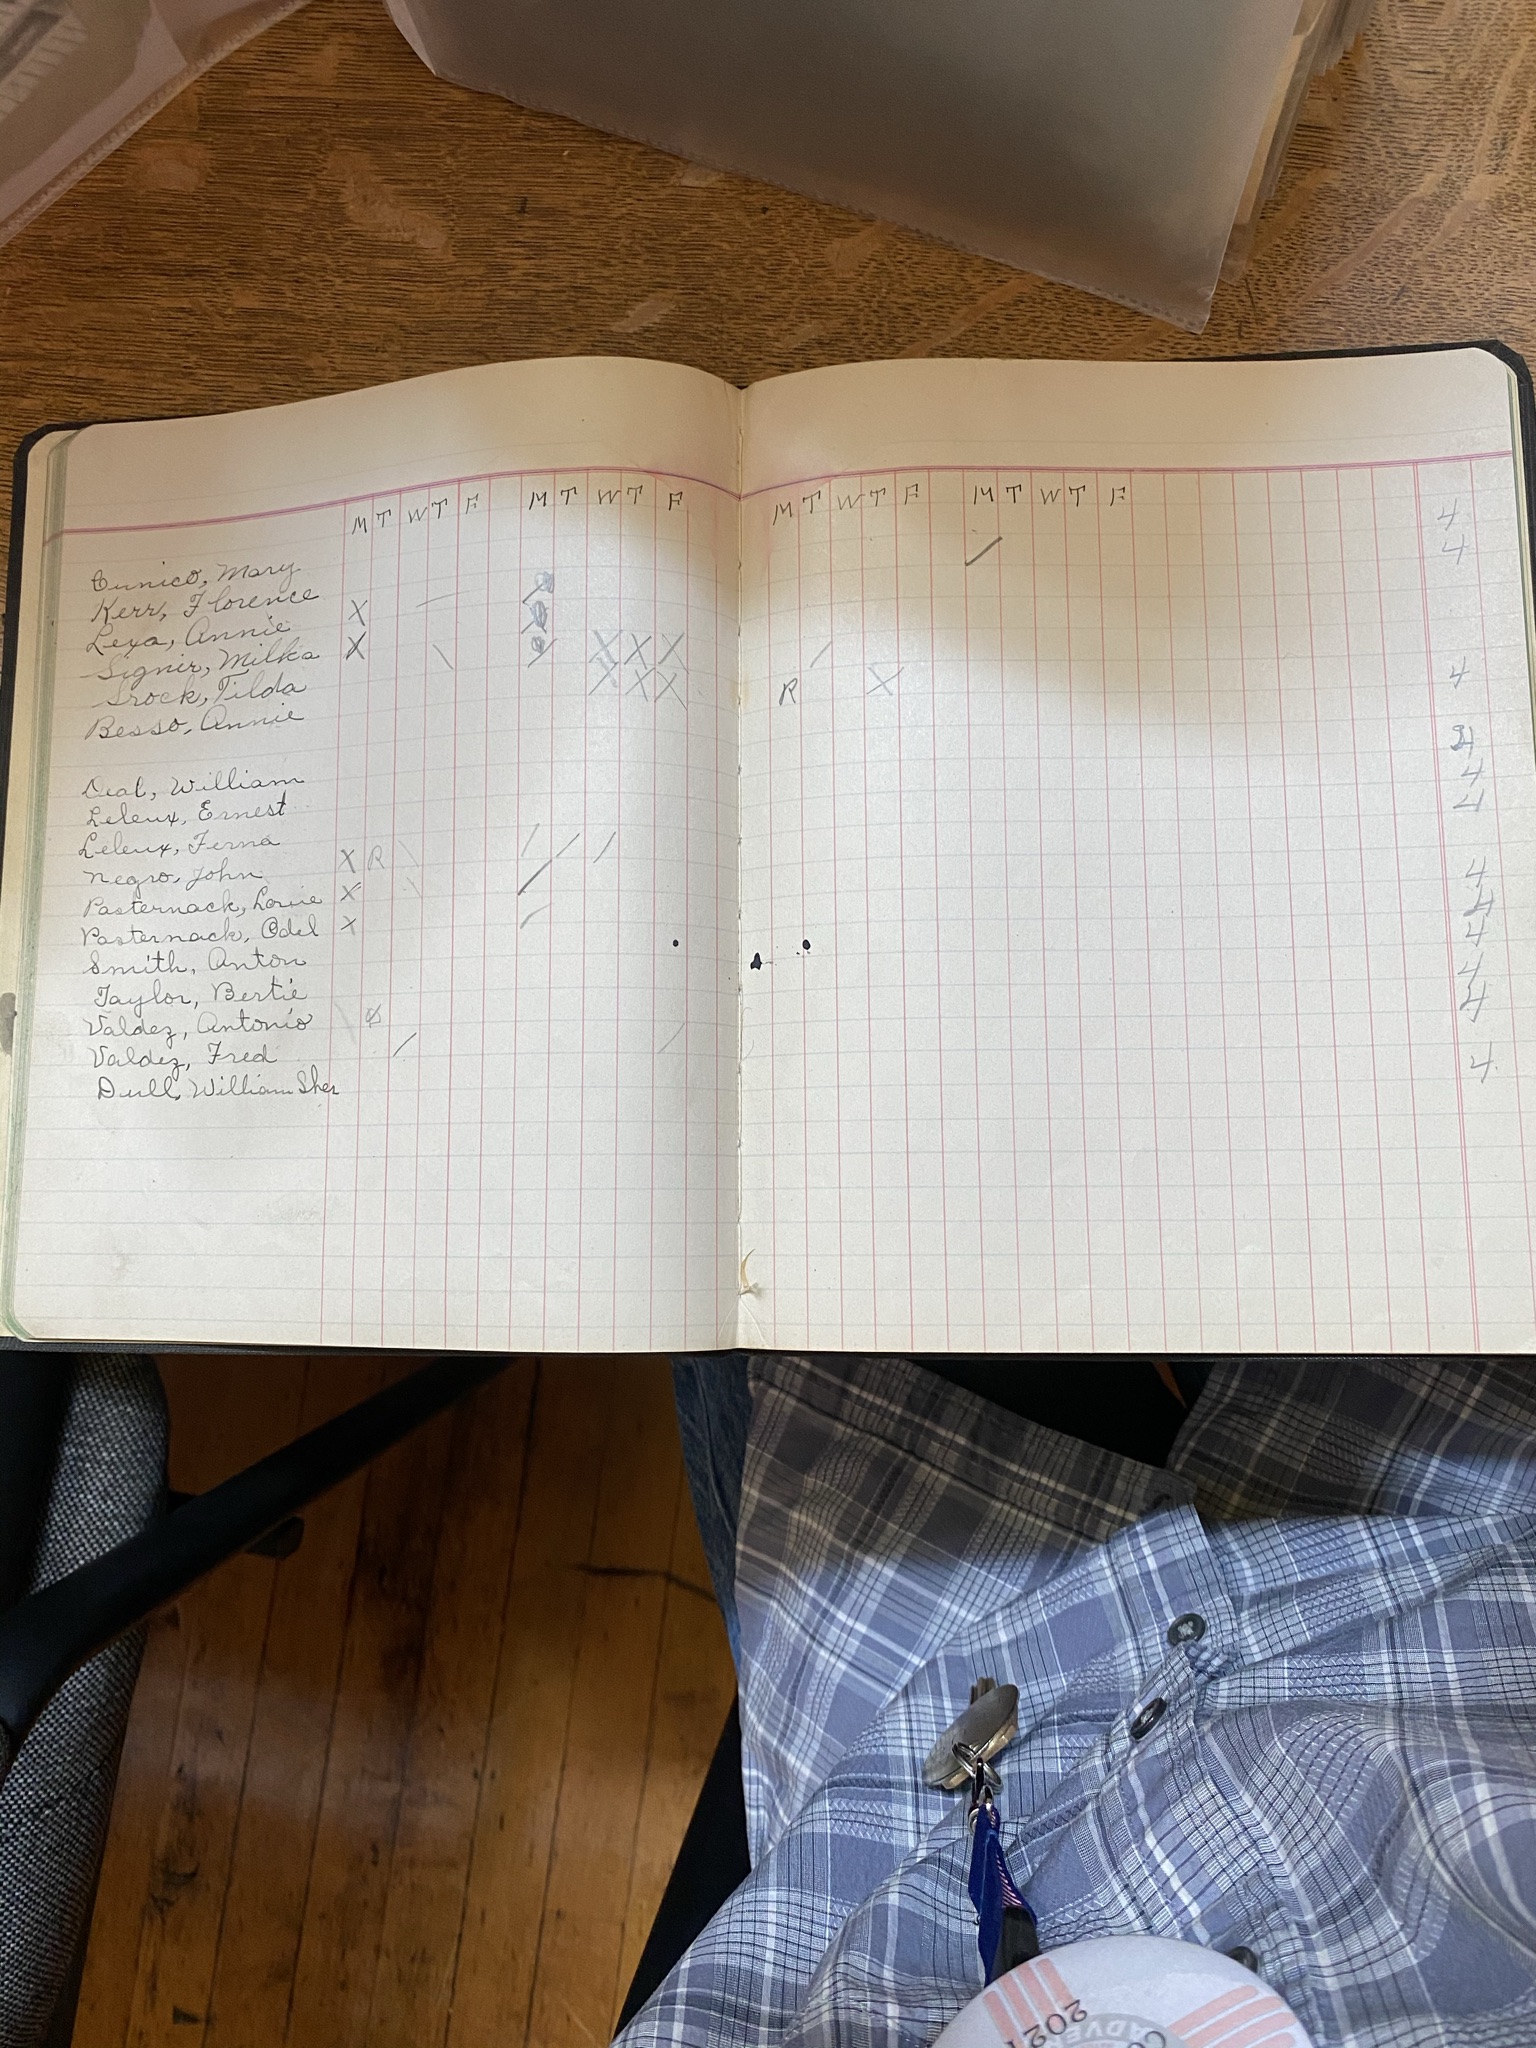 M T W T F M T W T F M T W T F M T W T F
4
Cunico, Mary / 4
Kerr, Florence
Lexa, Annie X
Signir, Milka X \ X X X /
Srock, Tilda X X X R X 4
Besso, Annie
4
Dial, William 4
Leleux, Ernest 4
Leleux, Ferna / / /
Negro, John X R \ / 4
Pasternack, Louie X \ 4
Pasternack, Odel X / 4
Smith, Anton 4
Taylor, Bertie 4
Valdez, Antonio
Valdez, Fred / / 4
Dull, William Sher
2021